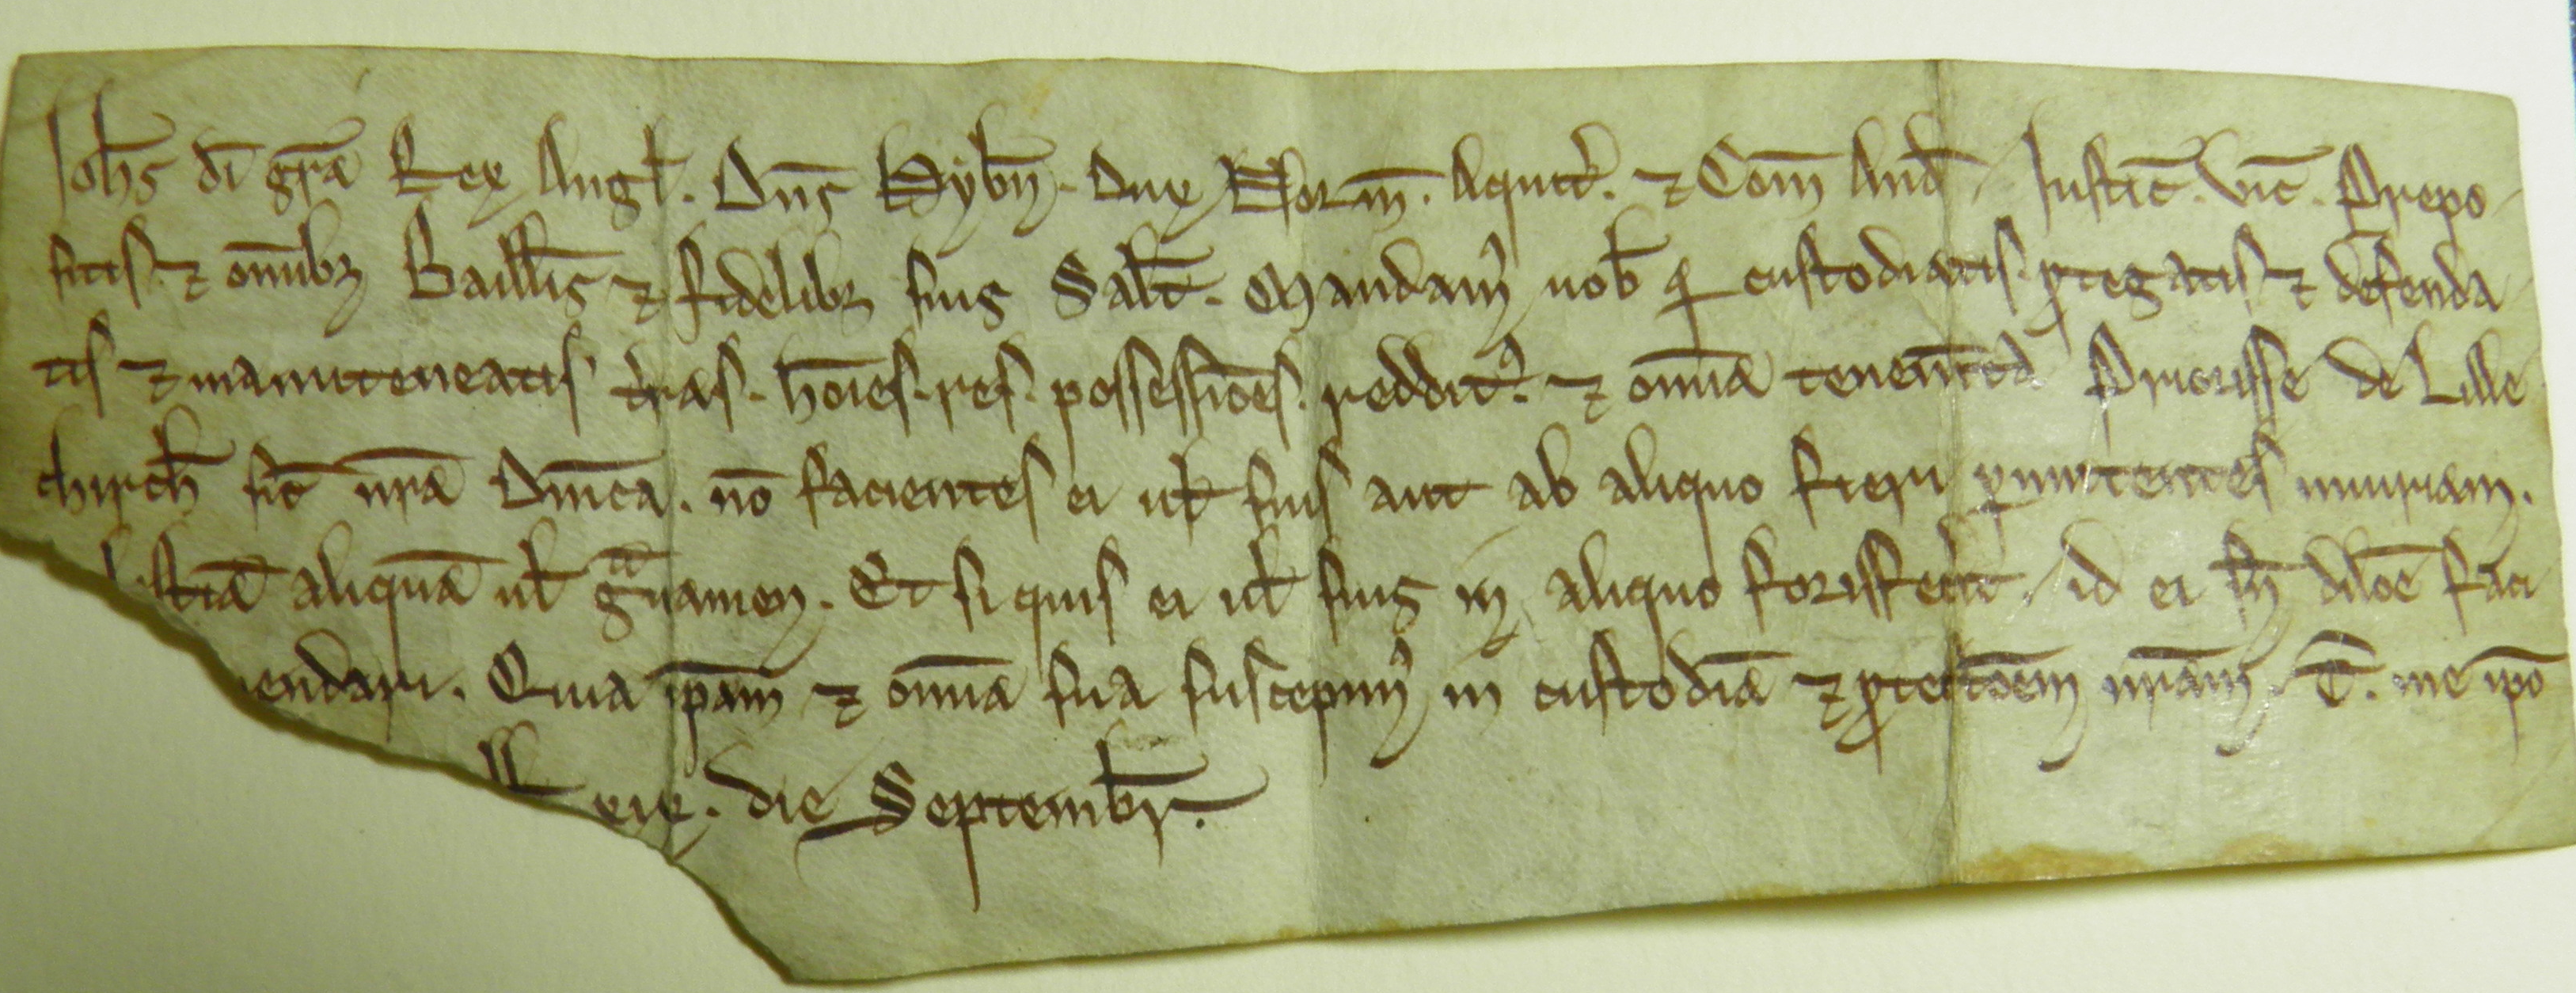 Joħs dī gr̄a Rex Angł. Dn̄s Hyƀn̄. Dux Norm̄. Aquit̓. ⁊ Com̄ And̄. Justic̄. vic̄. Prepo
sitis. ⁊ om̄ib; Baillīs ⁊ fidelib; suis Salt̄. Mandam᷒ uoƀ qd custodiatis. ꝓtegatis ⁊ defenda
tis ⁊ manuteneatis t̓ras. hōies. res. possessiōes. reddit᷒. ⁊ om̄ia tenem̄ta Priorisse de Lille
chircħ sic̄ nr̄a Dn̄ica. nō facientes ei uł suis aut ab aliquo fieri ꝑmittentes iniuriam.
lestiā aliquā uł gᵃuamen. Et si quis ei uł suis in aliquo forisfec̄it. id ei sn̄ dilōe faci
endari. Quia ip̄am ⁊ om̄ia sua suscepim᷒ in custodiā ⁊ ꝓtectōem nr̄am. T̄. me ip̄o
eie. die Septembr̄.